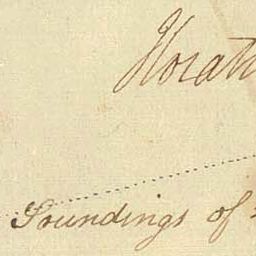 Horat
Soundings of